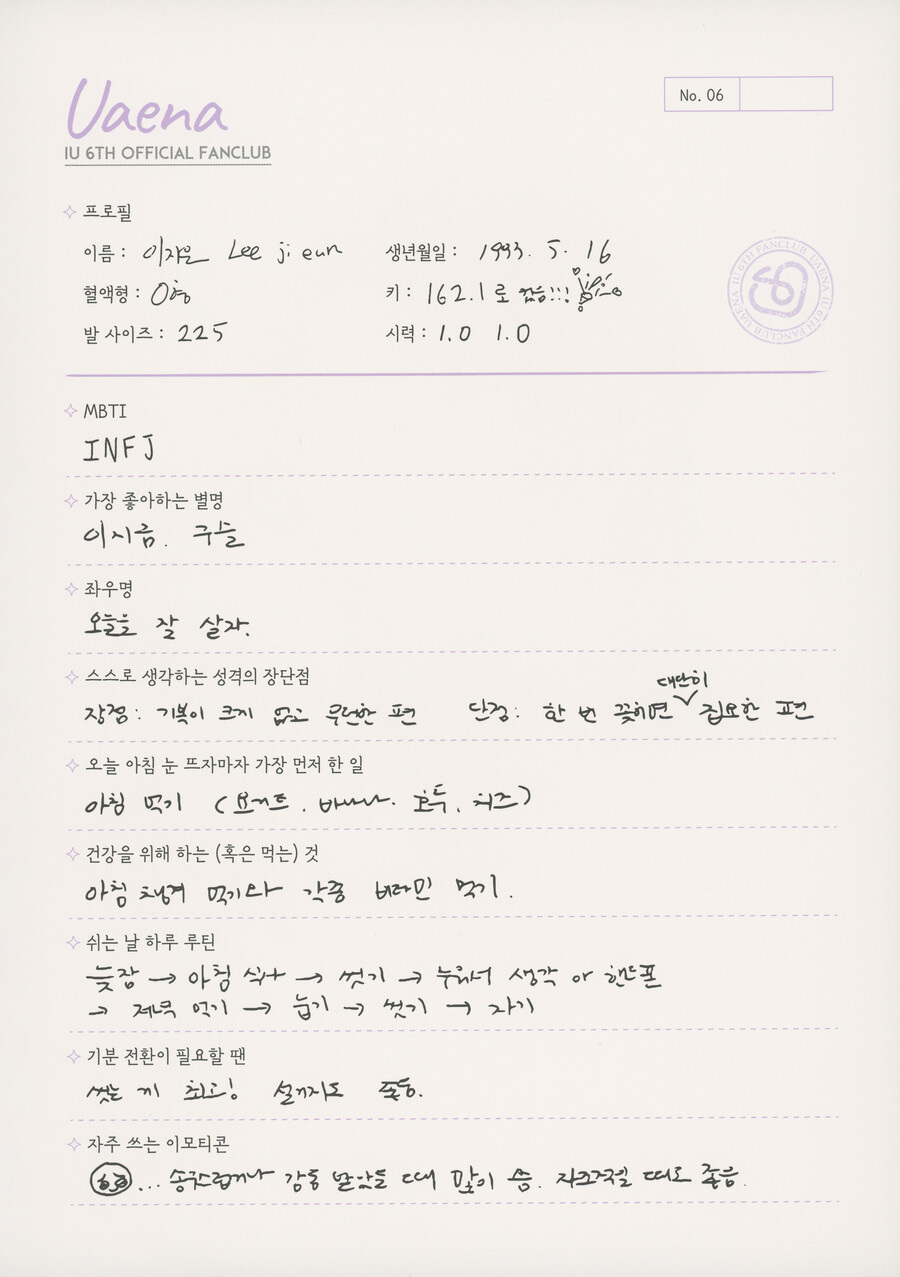 Uaena
IU 6TH OFFICIAL FANCLUB
No. 06
프로필
이름 : 이지은 Lee ji eun
생년월일 : 1993. 5. 16
혈액형 : O형
키 : 162.1로 컸음!!!
발 사이즈 : 225
시력 : 1.0 1.0
IU 6TH FANCLUB UAENA IU 6TH FANCLUB UAENA
MBTI
INFJ
가장 좋아하는 별명
이지금. 구늘
좌우명
오늘을 잘 살자.
스스로 생각하는 성격의 장단점
장점 : 기복이 크지 않고 무던한 편 단점 : 한 번 꽂히면 대단히 집요한 편
오늘 아침 눈 뜨자마자 가장 먼저 한 일
아침 먹기 (요거트. 바나나. 호두. 치즈)
건강을 위해 하는 (혹은 먹는) 것
아침 챙겨 먹기와 각종 비타민 먹기.
쉬는 날 하루 루틴
늦잠 → 아침 식사 → 씻기 → 누워서 생각 or 핸드폰
→ 저녁 먹기 → 눕기 → 씻기 → 자기
기분 전환이 필요할 땐
씻는 게 최고! 설거지도 좋음.
자주 쓰는 이모티콘
... 송구스럽거나 감동 받았을 때 많이 씀. 자조적일 때도 좋음.